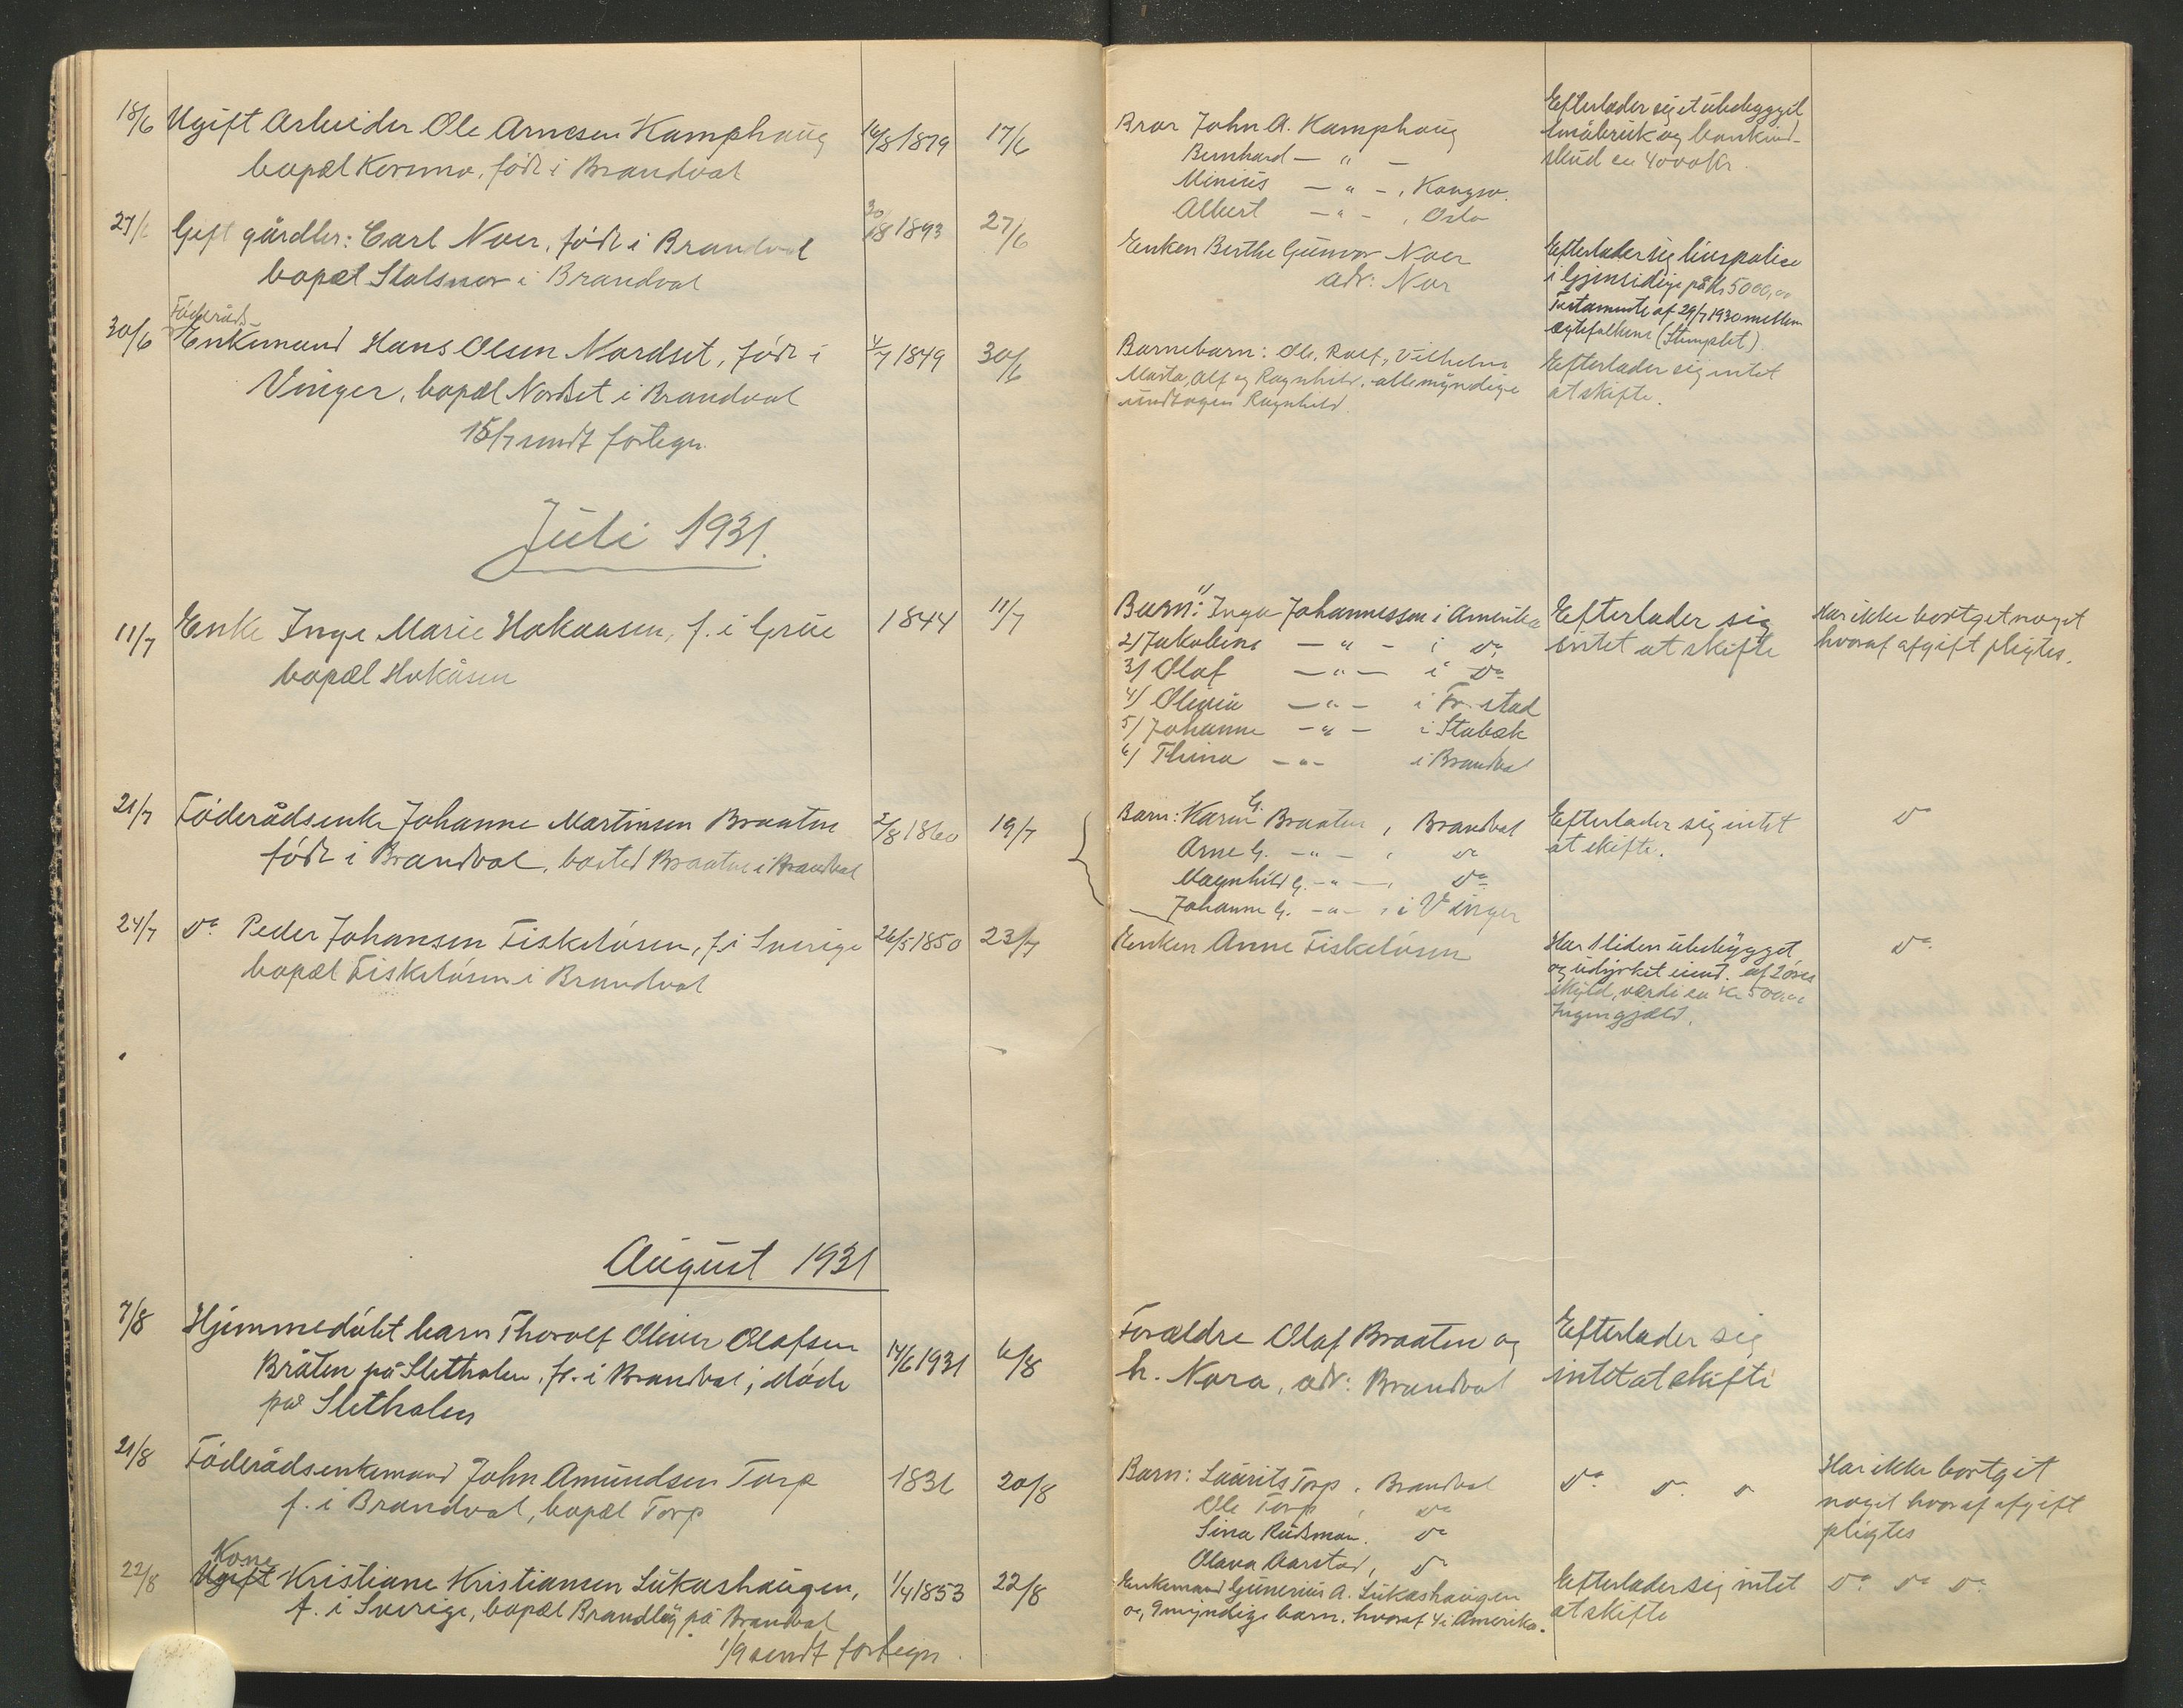 18/6 Ugift Arbeider Ole Arnesen Kamphaug 16/8 1879 17/6
bopæl Kornmo, født i Brandval
27/6 Gift gårdbr: Carl Noer, født i Brandval 30/8 1893 27/6
bopæl Slotsnor i Brandval
Föderåds-
30/6 Enkemand Hans Olsen Nordset, født i 4/7 1849 30/6
Vinger, bopæl Nordset i Brandval
15/7 sendt fortegn.
Juli 1931.
11/7 Enke Inge Marie Hokaasen, f. i Grue 1844 11/7
bopæl Hokåsen
21/7 Föderådsenke Johanne Martinsen Braaten 2/8 1860 19/7
född i Brandval, bosted Braaten i Brandval
24/7 do Peder Johansen Fisketösen, f. i Sverige 26/5 1850 23/7
bopæl Fisketösen i Brandval
August 1931
7/8 Hjemmedöbt barn Thorolf Oliver Olafsen
Bråten på Sletholen, f. i Brandval, döde 14/6 1931 6/8
på Sletholen
21/8 Föderådsenkemand John Amundsen Torp 1836 20/8
f. i Brandval, bopæl Torp
Kone
22/8 Ugift Kristiane Kristiansen Lukashaugen, 1/4 1853 22/8
f. i Sverige, bopæl Brandlög på Brandval
1/9 sendt fortegn.
Bror John A. Kamphaug
Bernhard — " —
Minius — " —, Kongsv.
Albert — " —, Oslo
Efterlader sig et ubebygget
småbruk og bankind-
skud ca 4000 kr.
Enken Berthe Gunvor Noer
adr: Nor
Efterlader sig livspolice
i Gjensidige på kr 5000,00
Testamente af 29/7 1930 mellem
egtefolkene (Stemplet)
Barnebarn: Ole, Rolf, Vilhelm
Marta, Alf og Ragnhild, alle myndige
undtagen Ragnhild.
Efterlader sig intet
at skifte.
Barn: 1/ Inga Johannessen i Amerika
2/ Jakobine — " — i do
3/ Olaf — " — i do
4/ Olivia — " — i Fr.stad
5/ Johanne — " — i Stabæk
6/ Thina — " — i Brandval
Efterlader sig
intet at skifte
Har ikke bortget noget
hvoraf afgift pligtes.
Barn: Karen G. Braaten, Brandval
Arne G. — " —, do
Magnhild G. — " —, do
Johanne G. — " —, i Vinger
Efterlader sig intet
at skifte.
do
Enken Anne Fisketösen
Har 1 liden ubebygget
og udyrket eiend. af 2 öres
skyld, værdi ca kr 500,00
Ingen gjæld.
do
Forældre Olaf Braaten og
h. Nora, adr: Brandval
Efterlader sig
intet at skifte
Barn: Laurits Torp, Brandval
Ole Torp, do
Sina Rudsmoen, do
Olava Aarstad, do
do do do
Har ikke bortgit
noget hvoraf afgift
pligtes
Enkemand Gunerius A. Lukashaugen
og 9 myndige barn, hvoraf 4 i Amerika.
Efterlader sig intet
at skifte
do do do